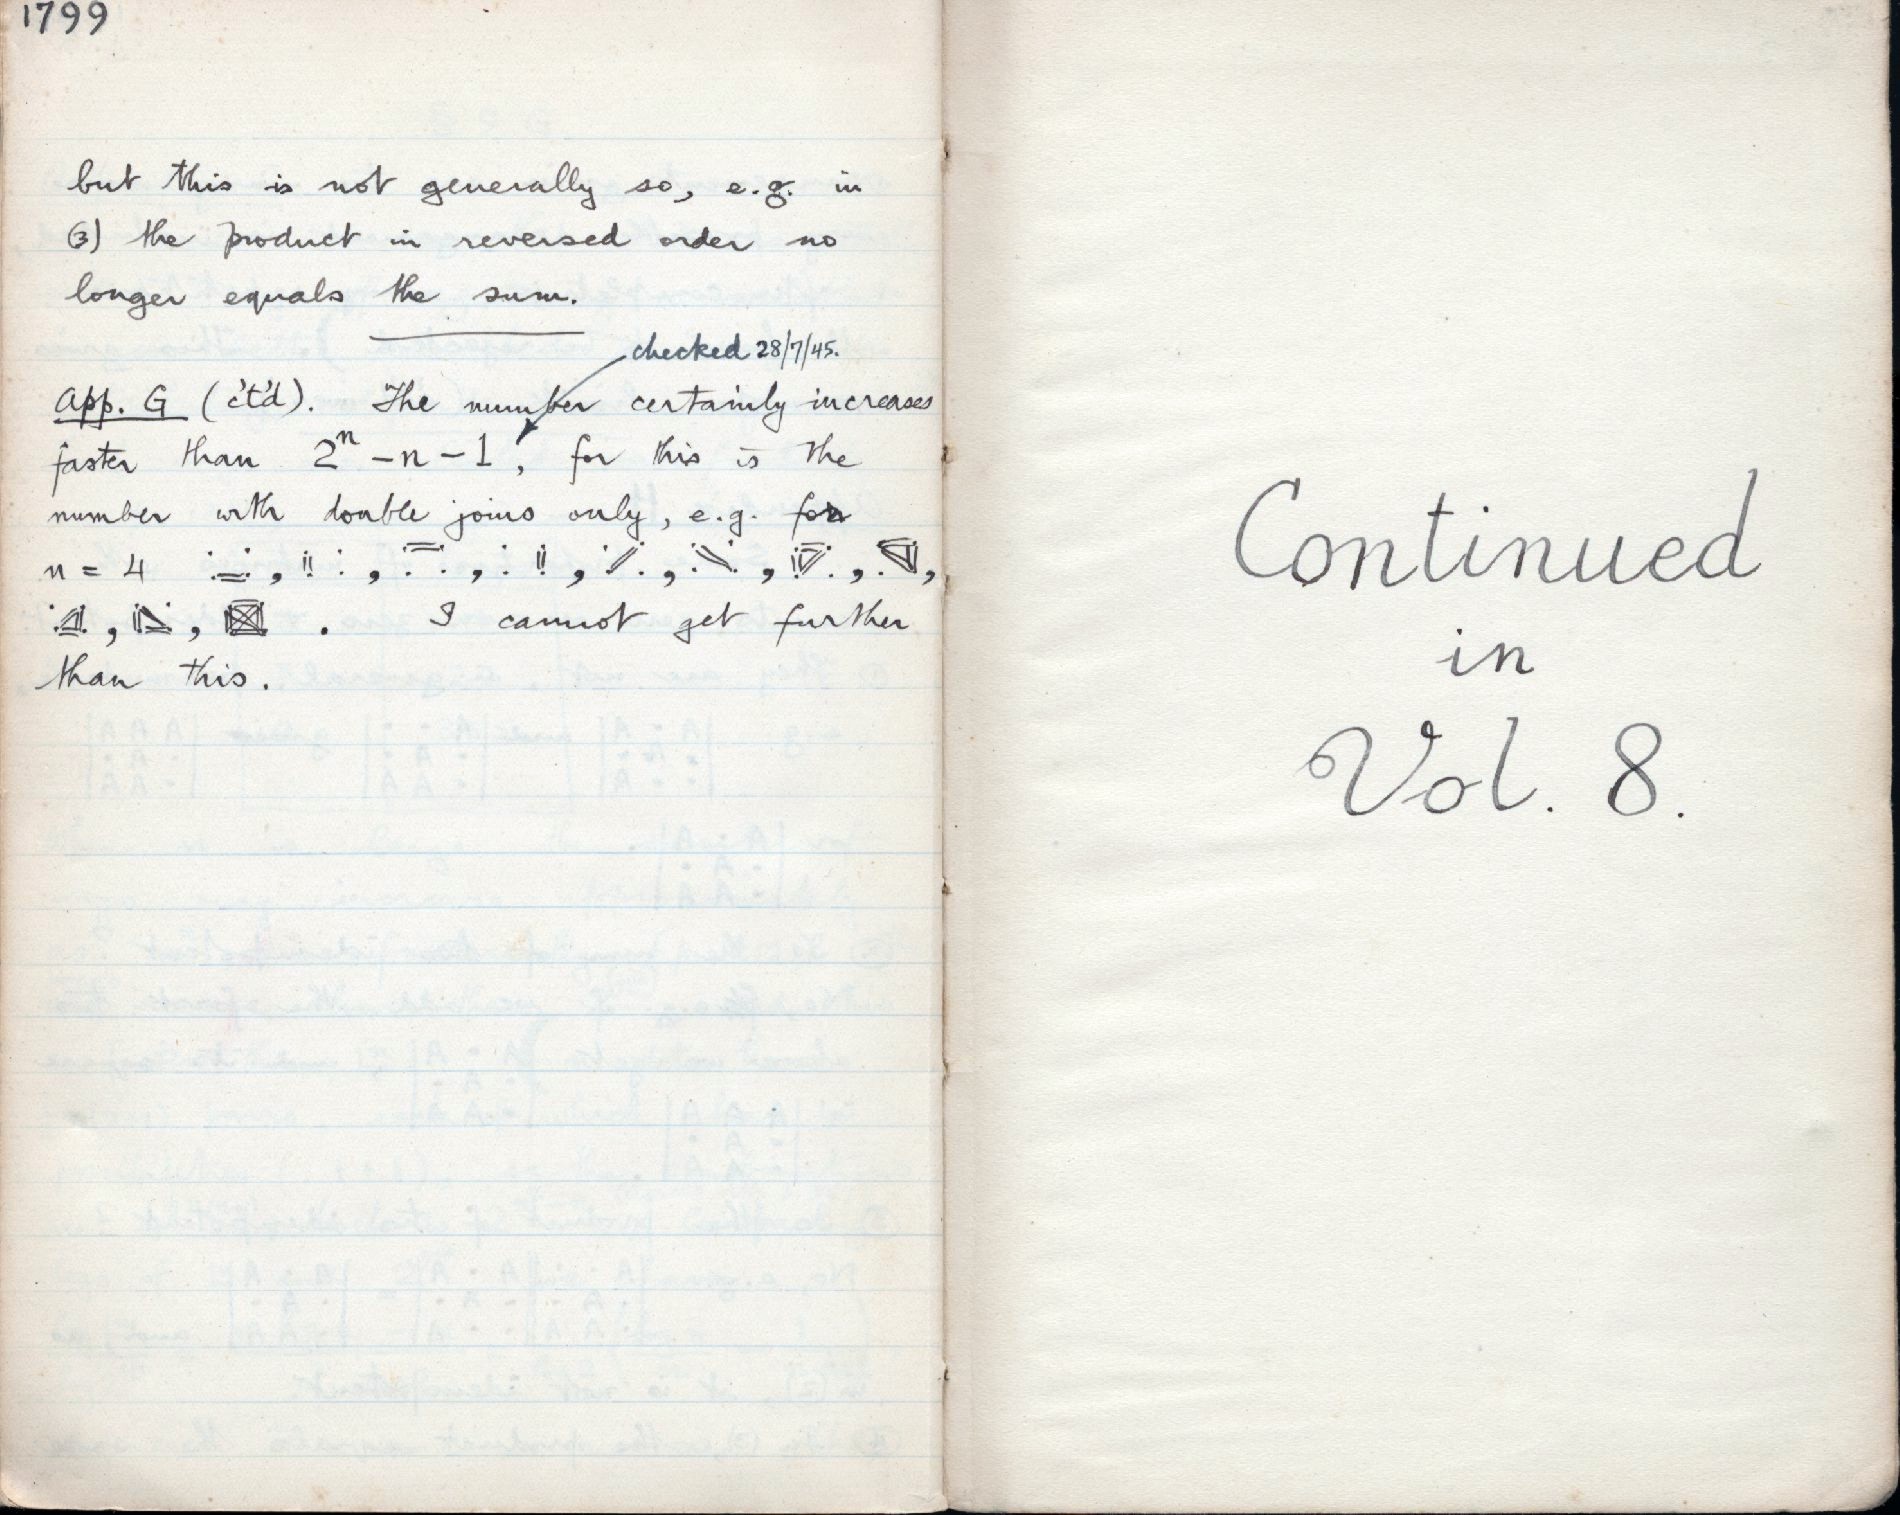 1799
but this is not generally so, e.g. in
(3) the product in reversed order no
longer equals the sum.
checked 28/7/45.
App. G (c't'd). The number certainly increases
faster than 2ⁿ - n - 1, for this is the
number with double joins only, e.g. for
n = 4 , , , , , , , ,
, , . I cannot get further
than this.
Continued
in
Vol. 8.